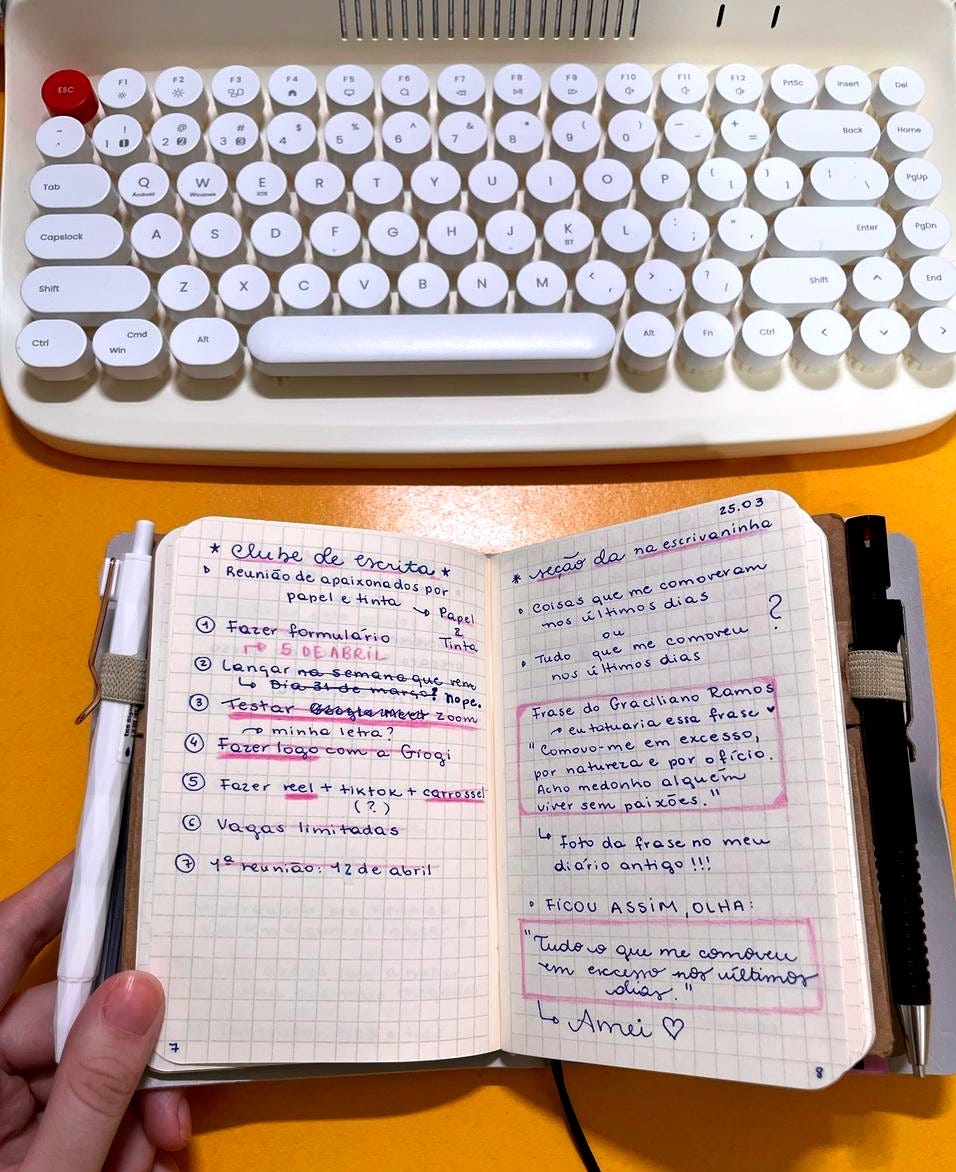 ESC F1 F2 F3 F4 F5 F6 F7 F8 F9 F10 F11 F12 PrtSc Insert Del
~ ! @ # $ % ^ & * ( ) _ + Back Home
1 1 2 2 3 3 4 5 6 7 8 9 0 - =
Tab Q W E R T Y U I O P { [ } ] | \ PgUp
Android Windows iOS
Capslock A S D F G H J K L : ; " , Enter PgDn
BT
Shift Z X C V B N M < , > . ? / Shift ^ End
Ctrl Cmd Win Alt Alt Fn Ctrl < v >
* clube de escrita *
Reunião de apaixonados por
papel e tinta → Papel
&
Tinta
① Fazer formulário
↳ 5 DE ABRIL
② Lançar na semana que vem
↳ Dia 31 de março? nope.
③ Testar Google meet zoom
↷ minha letra?
④ Fazer logo com a Giogi
⑤ Fazer reel + tiktok + carrossel
(?)
⑥ Vagas limitadas
⑦ 1ª reunião: 12 de abril
7
25.03
* seção da na escrivaninha
Coisas que me comoveram
nos últimos dias
ou
?
Tudo que me comoveu
nos últimos dias
Frase do Graciliano Ramos
→ eu tatuaria essa frase ♥
"Comovo-me em excesso,
por natureza e por ofício.
Acho medonho alguém
viver sem paixões."
↳ foto da frase no meu
diário antigo !!!
FICOU ASSIM, OLHA:
"Tudo o que me comoveu
em excesso nos últimos
dias."
↳ Amei ♡
8